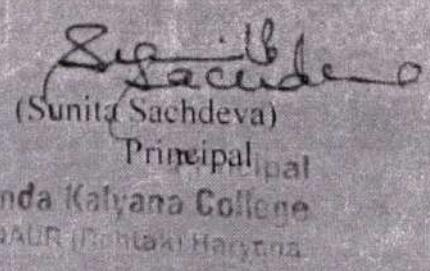 Sunita
Sachdeva
(Sunita Sachdeva)
Principal
Principal
nda Kalyana College
(Rohtak) Haryana